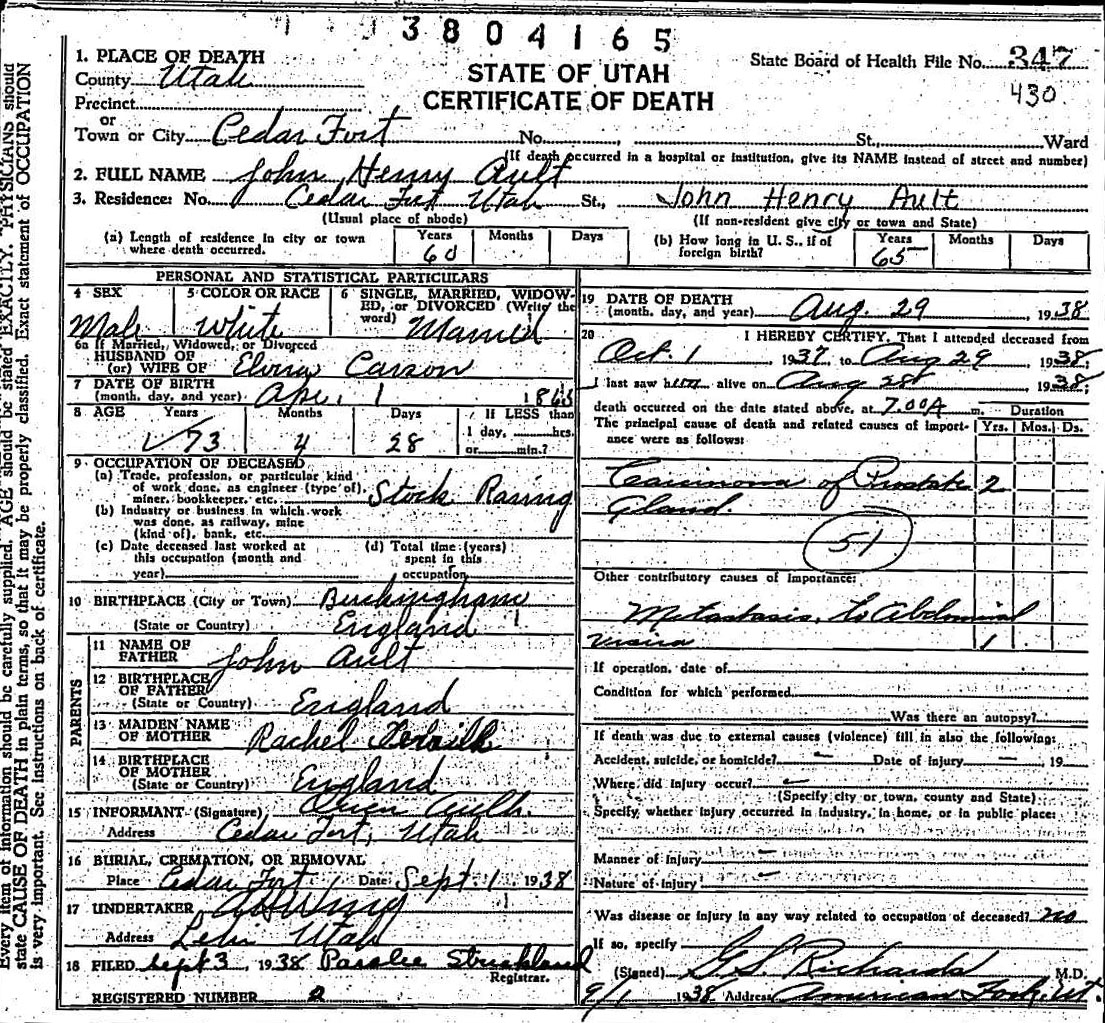 3804165
1. PLACE OF DEATH
County Utah
Precinct
or
Town or City Cedar Fort No. St., Ward
STATE OF UTAH
CERTIFICATE OF DEATH
State Board of Health File No. 347
430
(If death occurred in a hospital or institution, give its NAME instead of street and number)
2. FULL NAME John Henry Ault
3. Residence: No. Cedar Fort Utah St., John Henry Ault
(Usual place of abode) (If non-resident give city or town and State)
(a) Length of residence in city or town where death occurred. Years 60 Months Days
(b) How long in U. S., if of foreign birth? Years 65 Months Days
PERSONAL AND STATISTICAL PARTICULARS
4 SEX Male
5 COLOR OR RACE White
6 SINGLE, MARRIED, WIDOWED, or DIVORCED (Write the word) Married
6a If Married, Widowed, or Divorced
HUSBAND OF
(or) WIFE OF Elvira Carson
7 DATE OF BIRTH
(month, day, and year) Apr. 1 1865
8 AGE Years 73 Months 4 Days 28 If LESS than 1 day, hrs. or min.?
9 OCCUPATION OF DECEASED
(a) Trade, profession, or particular kind
of work done, as engineer (type of),
miner, bookkeeper, etc. Stock Raising
(b) Industry or business in which work
was done, as railway, mine
(kind of), bank, etc.
(c) Date deceased last worked at
this occupation (month and
year)
(d) Total time (years)
spent in this
occupation
10 BIRTHPLACE (City or Town) Buckingham
(State or Country) England
PARENTS
11 NAME OF
FATHER John Ault
12 BIRTHPLACE
OF FATHER
(State or Country) England
13 MAIDEN NAME
OF MOTHER Rachel
14 BIRTHPLACE
OF MOTHER
(State or Country) England
15 INFORMANT (Signature) Ault
Address Cedar Fort, Utah
16 BURIAL, CREMATION, OR REMOVAL
Place Cedar Fort, Date Sept. 1 1938
17 UNDERTAKER
Address Lehi Utah
18 FILED Sept 3, 1938 Paralee Strickland
Registrar.
REGISTERED NUMBER 2
19 DATE OF DEATH
(month, day, and year) Aug. 29, 1938
20 I HEREBY CERTIFY, That I attended deceased from
Oct. 1, 1937, to Aug 29 1938,
I last saw him alive on Aug 28 1938,
death occurred on the date stated above, at 7.00A m. Duration
The principal cause of death and related causes of importance were as follows: Yrs. Mos. Ds.
Carcinoma of Prostate 2
Gland.
51
Other contributory causes of importance:
Metastasis to Abdominal
1
If operation, date of
Condition for which performed
Was there an autopsy?
If death was due to external causes (violence) fill in also the following:
Accident, suicide, or homicide? — Date of injury — , 19
Where did injury occur? –
(Specify city or town, county and State)
Specify whether injury occurred in industry, in home, or in public place:
Manner of injury –
Nature of injury –
Was disease or injury in any way related to occupation of deceased? no
If so, specify
(Signed) G.S. Richards M.D.
9/1 1938 Address American Fork, Ut.
Every item of information should be carefully supplied. AGE should be stated EXACTLY. PHYSICIANS should
state CAUSE OF DEATH in plain terms, so that it may be properly classified. Exact statement of OCCUPATION
is very important. See instructions on back of certificate.